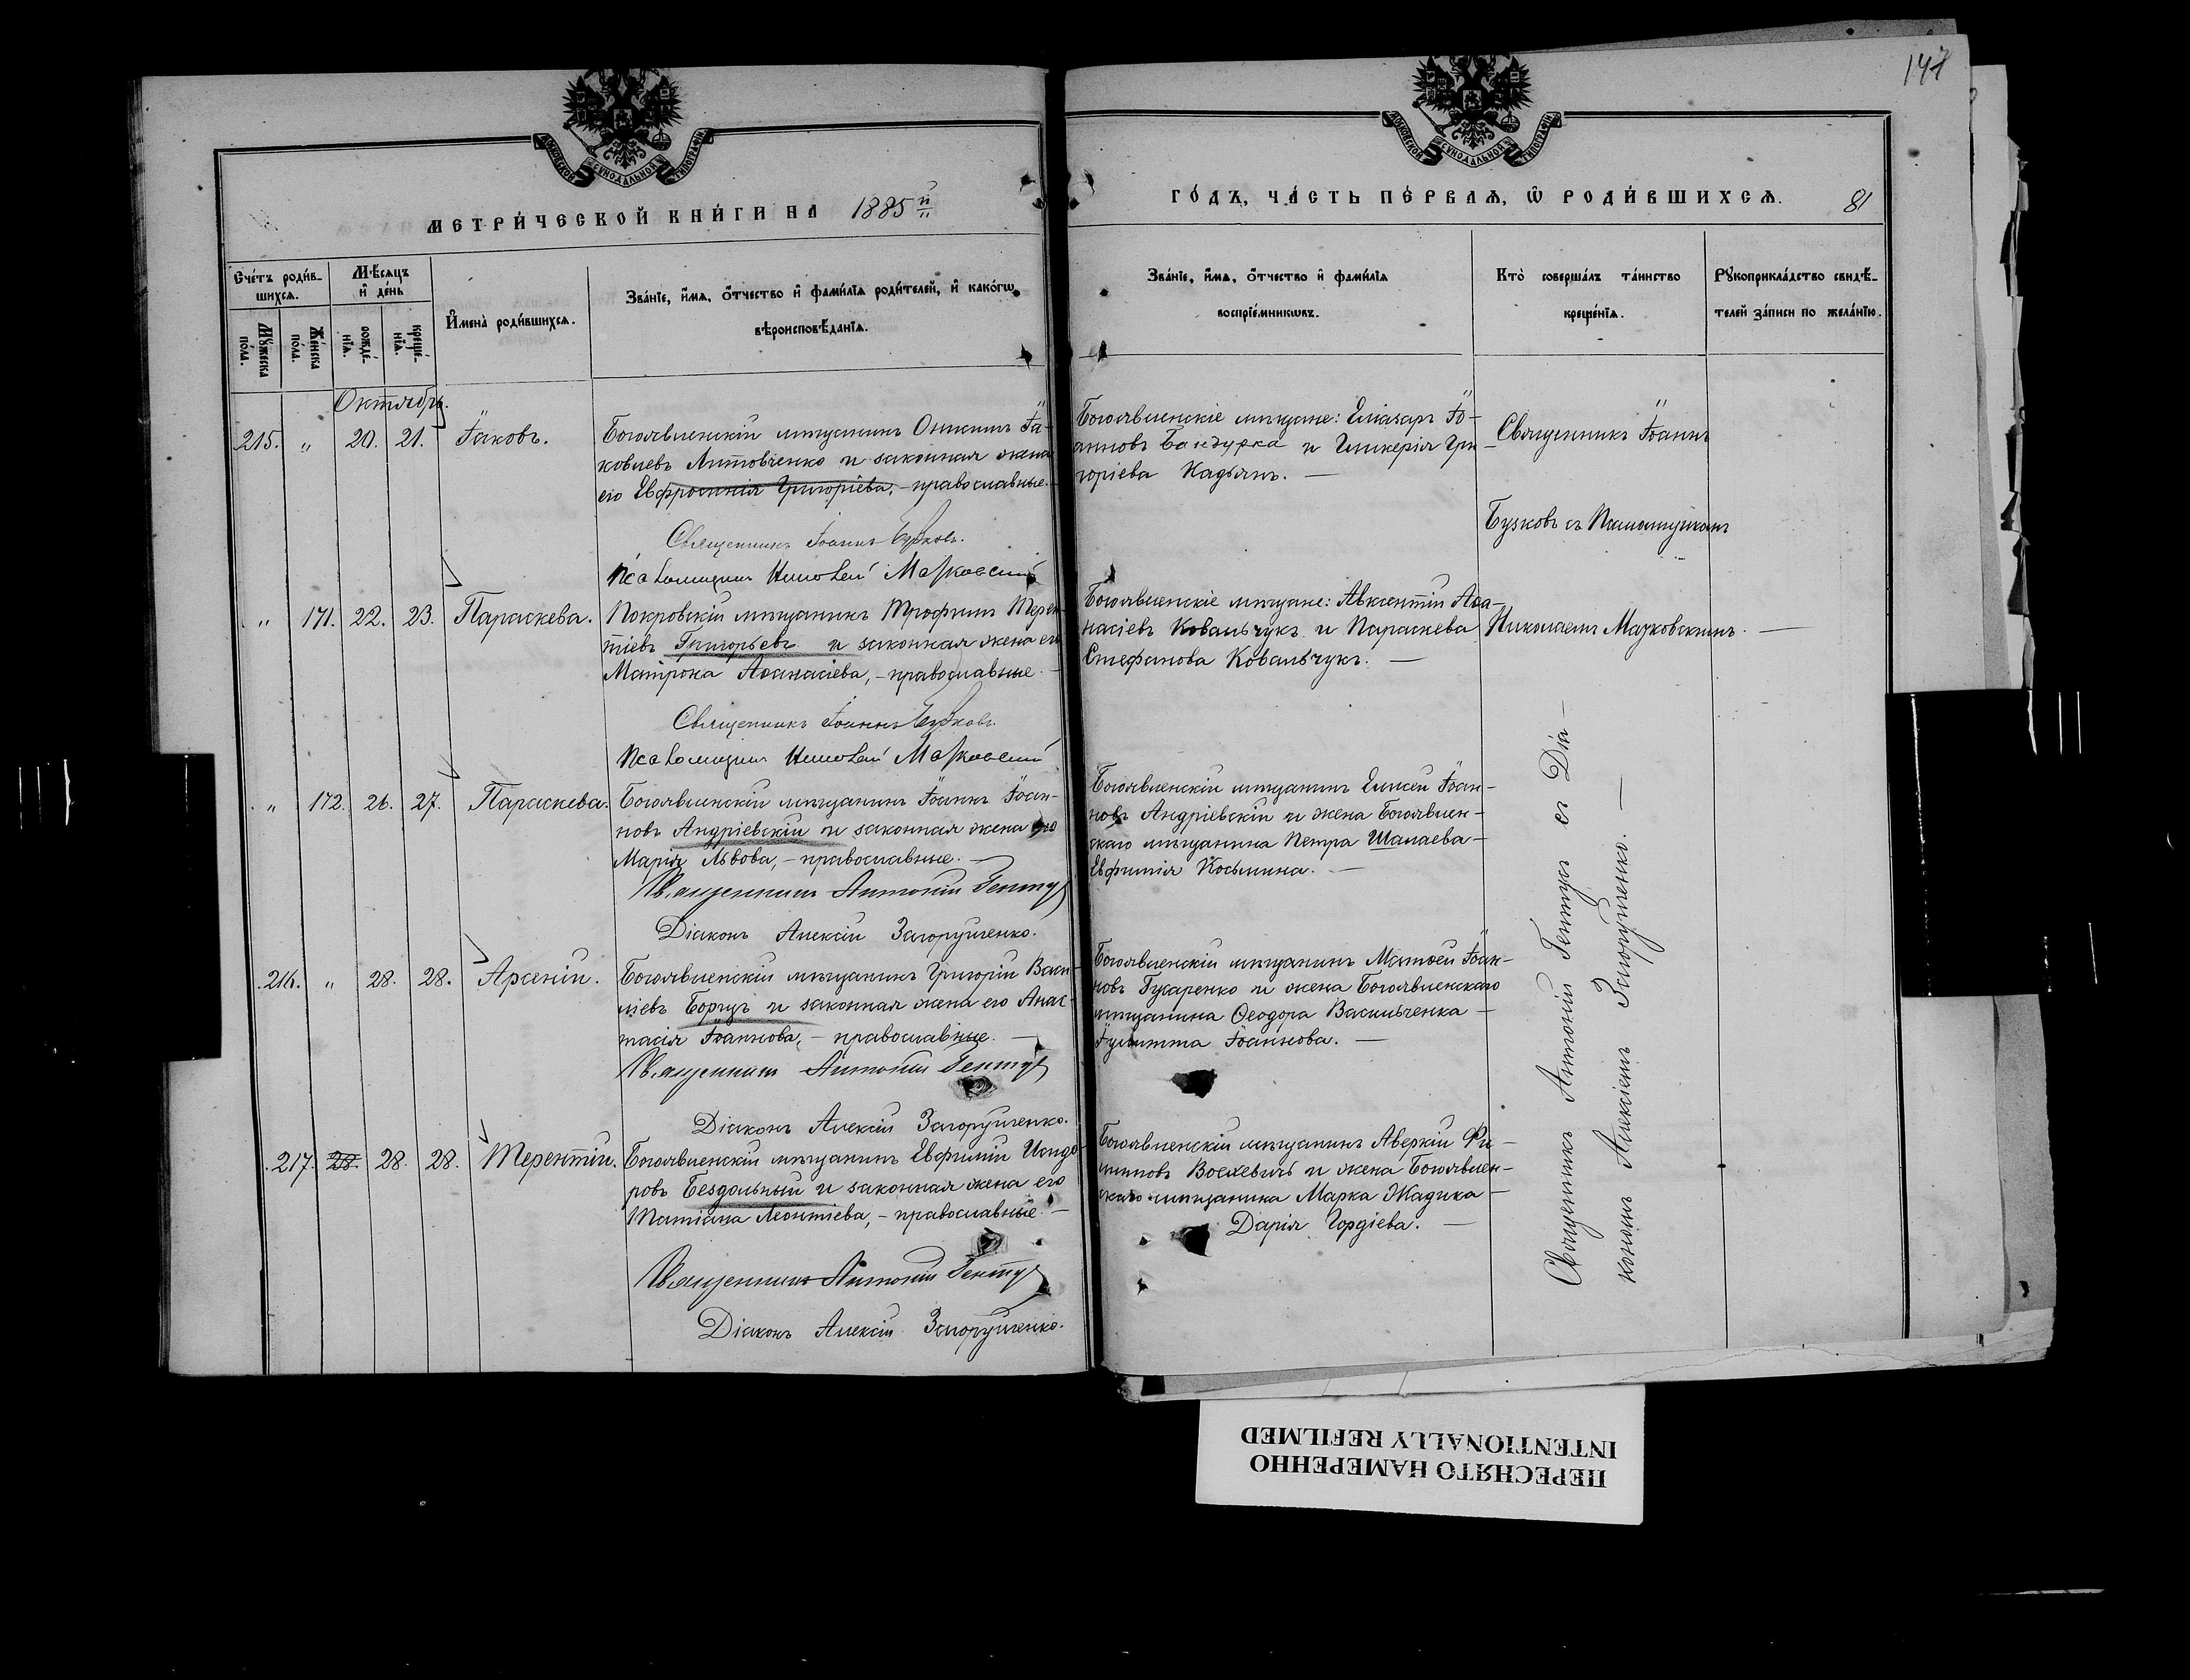 147
МОСКОВСКОЙ СУНОДАЛЬНОЙ ТИПОГРАФІИ
МОСКОВСКОЙ СУНОДАЛЬНОЙ ТИПОГРАФІИ
МЕТРИ́ЧЕСКОЙ КНИ́ГИ НА 1885й
ГО́ДЪ, ЧА́СТЬ ПЕ́РВАѦ, Ѡ РОДИ́ВШИХСѦ. 81
Сче́тъ роди́в-
шихсѧ.
Мꙋ́жеска по́ла.
Же́нска по́ла.
Мѣ́сѧцъ и҆ де́нь
рожде́-нїѧ.
креще́-нїѧ.
И҆мена̀ роди́вшихсѧ.
Зва́нїе, и҆́мѧ, ѻ҆́тчество и҆ фами́лїѧ роди́телей, и҆ како́гѡ
вѣроисповѣ́данїѧ.
Зва́нїе, и҆́мѧ, ѻ҆́тчество и҆ фами́лїѧ
воспрїе́мникѡвъ.
Кто̀ соверша́лъ та́инство
креще́нїѧ.
Рꙋкоприкла́дство свидѣ́-
телей за́писи по жела́нїю.
Октябрь.
215. " 20. 21. Іаковъ.
Богоявленскій мѣщанинъ Онисимъ Іа-
ковлевъ Литовченко и законная жена
его Евфросинія Григоріева, - православные.
Священникъ Іоаннъ Бузковъ.
Псаломщикъ Николай Марковскій
Богоявленскіе мѣщане: Еліазаръ Іо-
анновъ Бандурка и Гликерія Гри-
горіева Кадьянъ.
Священникъ Іоаннъ
Бузковъ съ Псаломщикомъ
Николаемъ Марковскимъ.
" 171. 22. 23. Параскева.
Покровскій мѣщанинъ Трофимъ Терен-
тіевъ Григорьевъ и законная жена его
Матрона Аѳанасіева, - православные.
Священникъ Іоаннъ Бузковъ.
Псаломщикъ Николай Марковскій
Богоявленскіе мѣщане: Авксентій Аѳа-
насіевъ Ковальчукъ и Параскева
Стефанова Ковальчукъ.
" 172. 26. 27. Параскева.
Богоявленскій мѣщанинъ Іоаннъ Іоан-
новъ Андріевскій и законная жена его
Марія Львова, - православные.
Священникъ Антоній
Діаконъ Алексій Загоруйченко.
Богоявленскій мѣщанинъ Елисей Іоан-
новъ Андріевскій и жена Богоявлен-
скаго мѣщанина Петра Шалаева
Евфимія Косьмина.
Священникъ Антоній съ Діа-
кономъ Алексіемъ Загоруйченко.
216. " 28. 28. Арсеній.
Богоявленскій мѣщанинъ Григорій Васи-
ліевъ Борщъ и законная жена его Анас-
тасія Іоаннова, - православные.
Священникъ Антоній
Діаконъ Алексій Загоруйченко.
Богоявленскій мѣщанинъ Матѳей Іоан-
новъ Гусаренко и жена Богоявленскаго
мѣщанина Ѳеодора Васильченка
Іулитта Іоаннова.
217. 28. 28. Терентій.
Богоявленскій мѣщанинъ Евфимій Исидо-
ровъ Бездольный и законная жена его
Татіана Леонтіева, - православные.
Священникъ Антоній
Діаконъ Алексій Загоруйченко.
Богоявленскій мѣщанинъ Аверкій Фи-
липповъ и жена Богоявлен-
скаго мѣщанина Марка Жадика
Дарія Гордіева.
ПЕРЕСНЯТО НАМЕРЕННО
INTENTIONALLY REFILMED